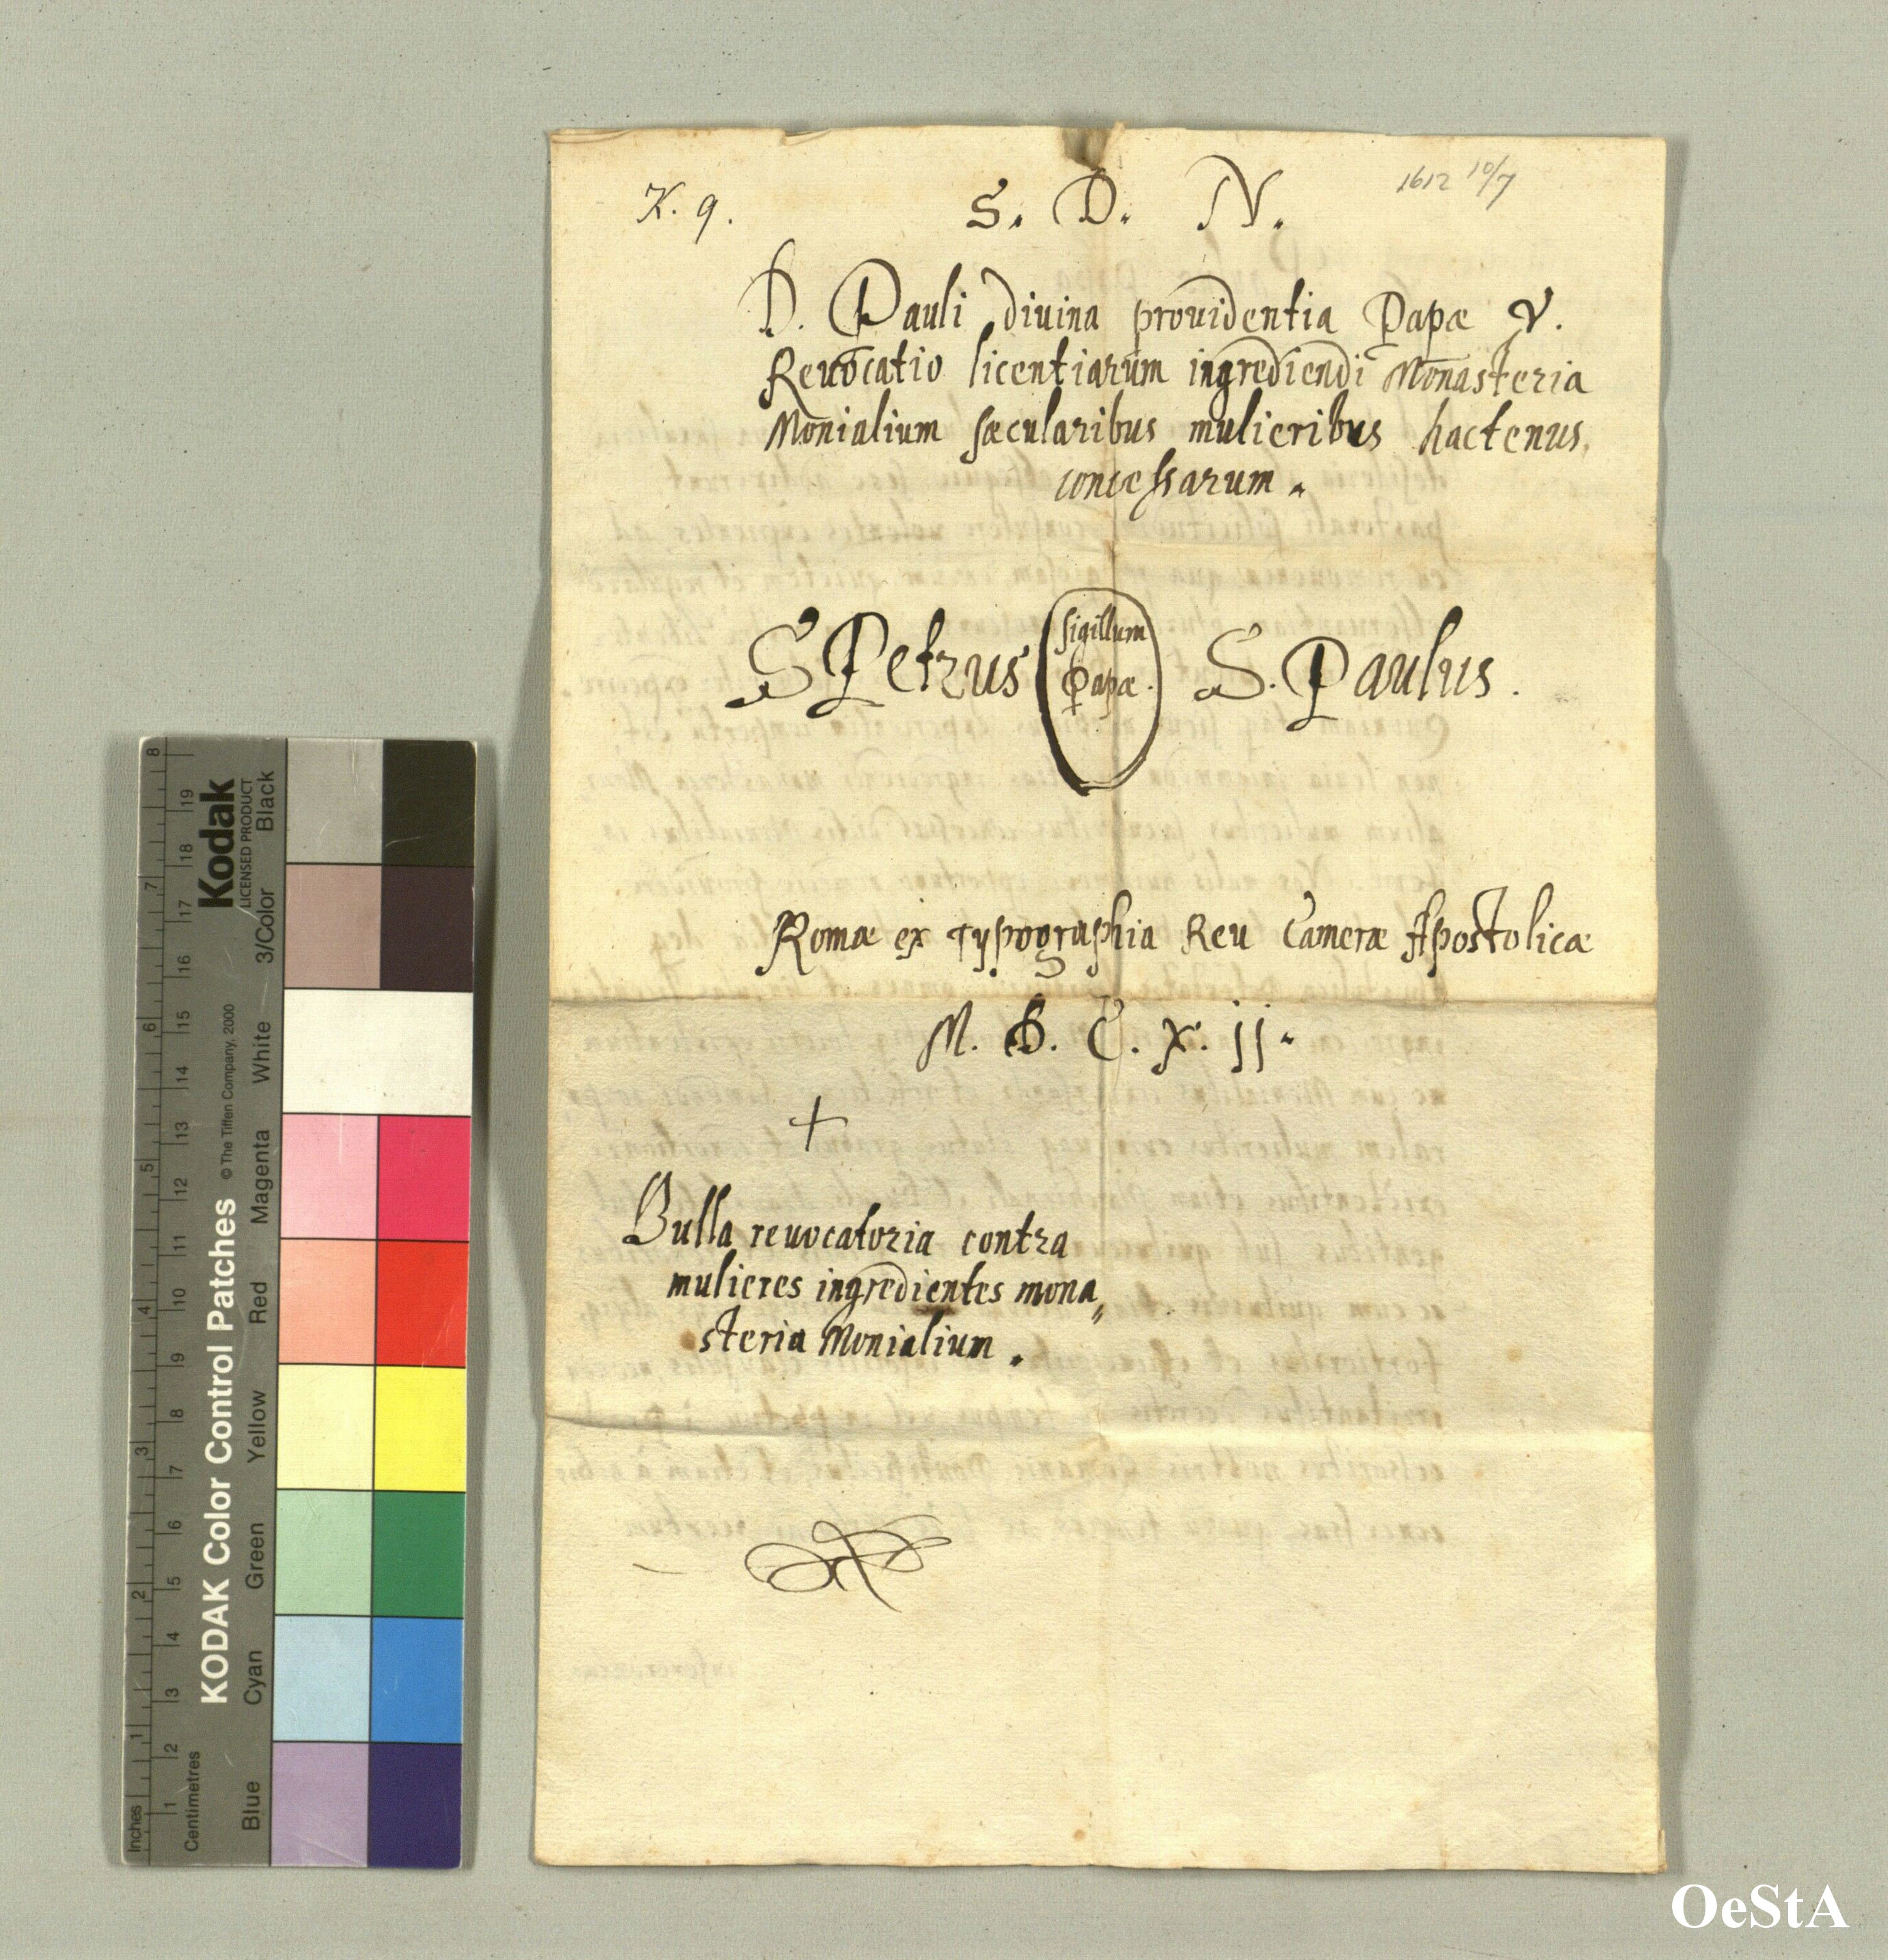 K. 9.
S. D. N.
1612 10/7
D. Pauli diuina prouidentia Papæ V.
Reuocatio licentiarum ingrediendi Monasteria
Monialium sæcularibus mulieribus hactenus
concessarum.
S Petrus
sigillum
Papæ.
S. Paulus.
Romæ ex Typographia Reu Cameræ Apostolicæ
M. D. C. X. jj.
+
Bulla reuocatoria contra
mulieres ingredientes mona„
steria Monialium.
KODAK Color Control Patches
© The Tiffen Company, 2000
Kodak
LICENSED PRODUCT
Inches
1 2 3 4 5 6 7 8
Centimetres
1 2 3 4 5 6 7 8 9 10 11 12 13 14 15 16 17 18 19
Blue
Cyan
Green
Yellow
Red
Magenta
White
3/Color
Black
OeStA